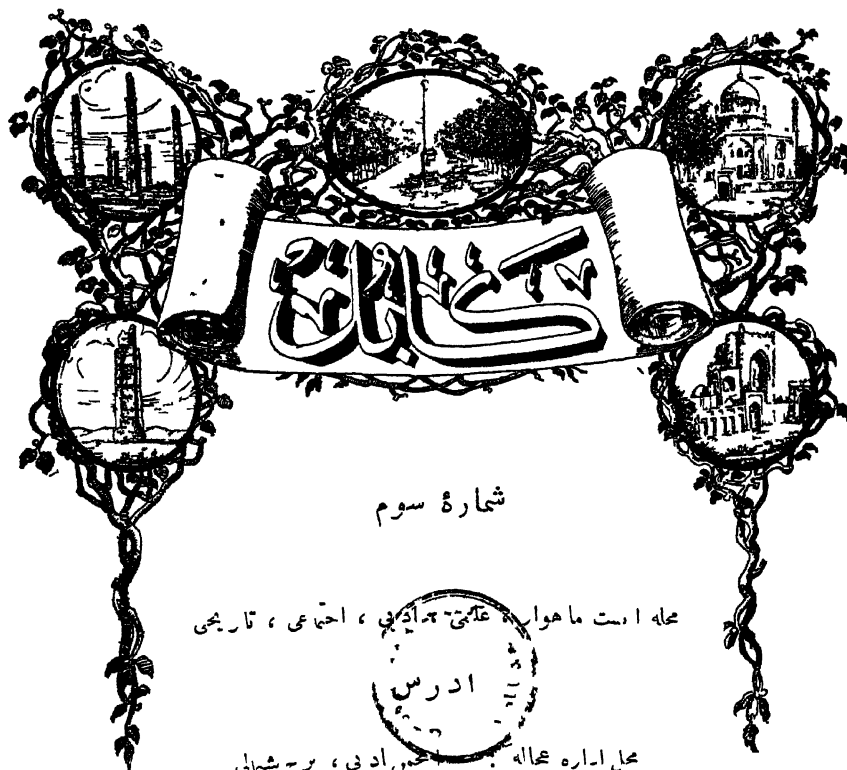 کابل
شمارهٔ سوم
مجله ایست ماهوار، علمی، ادبی، اجتماعی، تاریخی
ادرس
محل اداره عجاله انجمن ادبی، برج شمالی